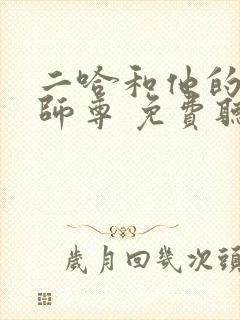 二哈和他的
師尊 免費聽
歲月回幾次頭